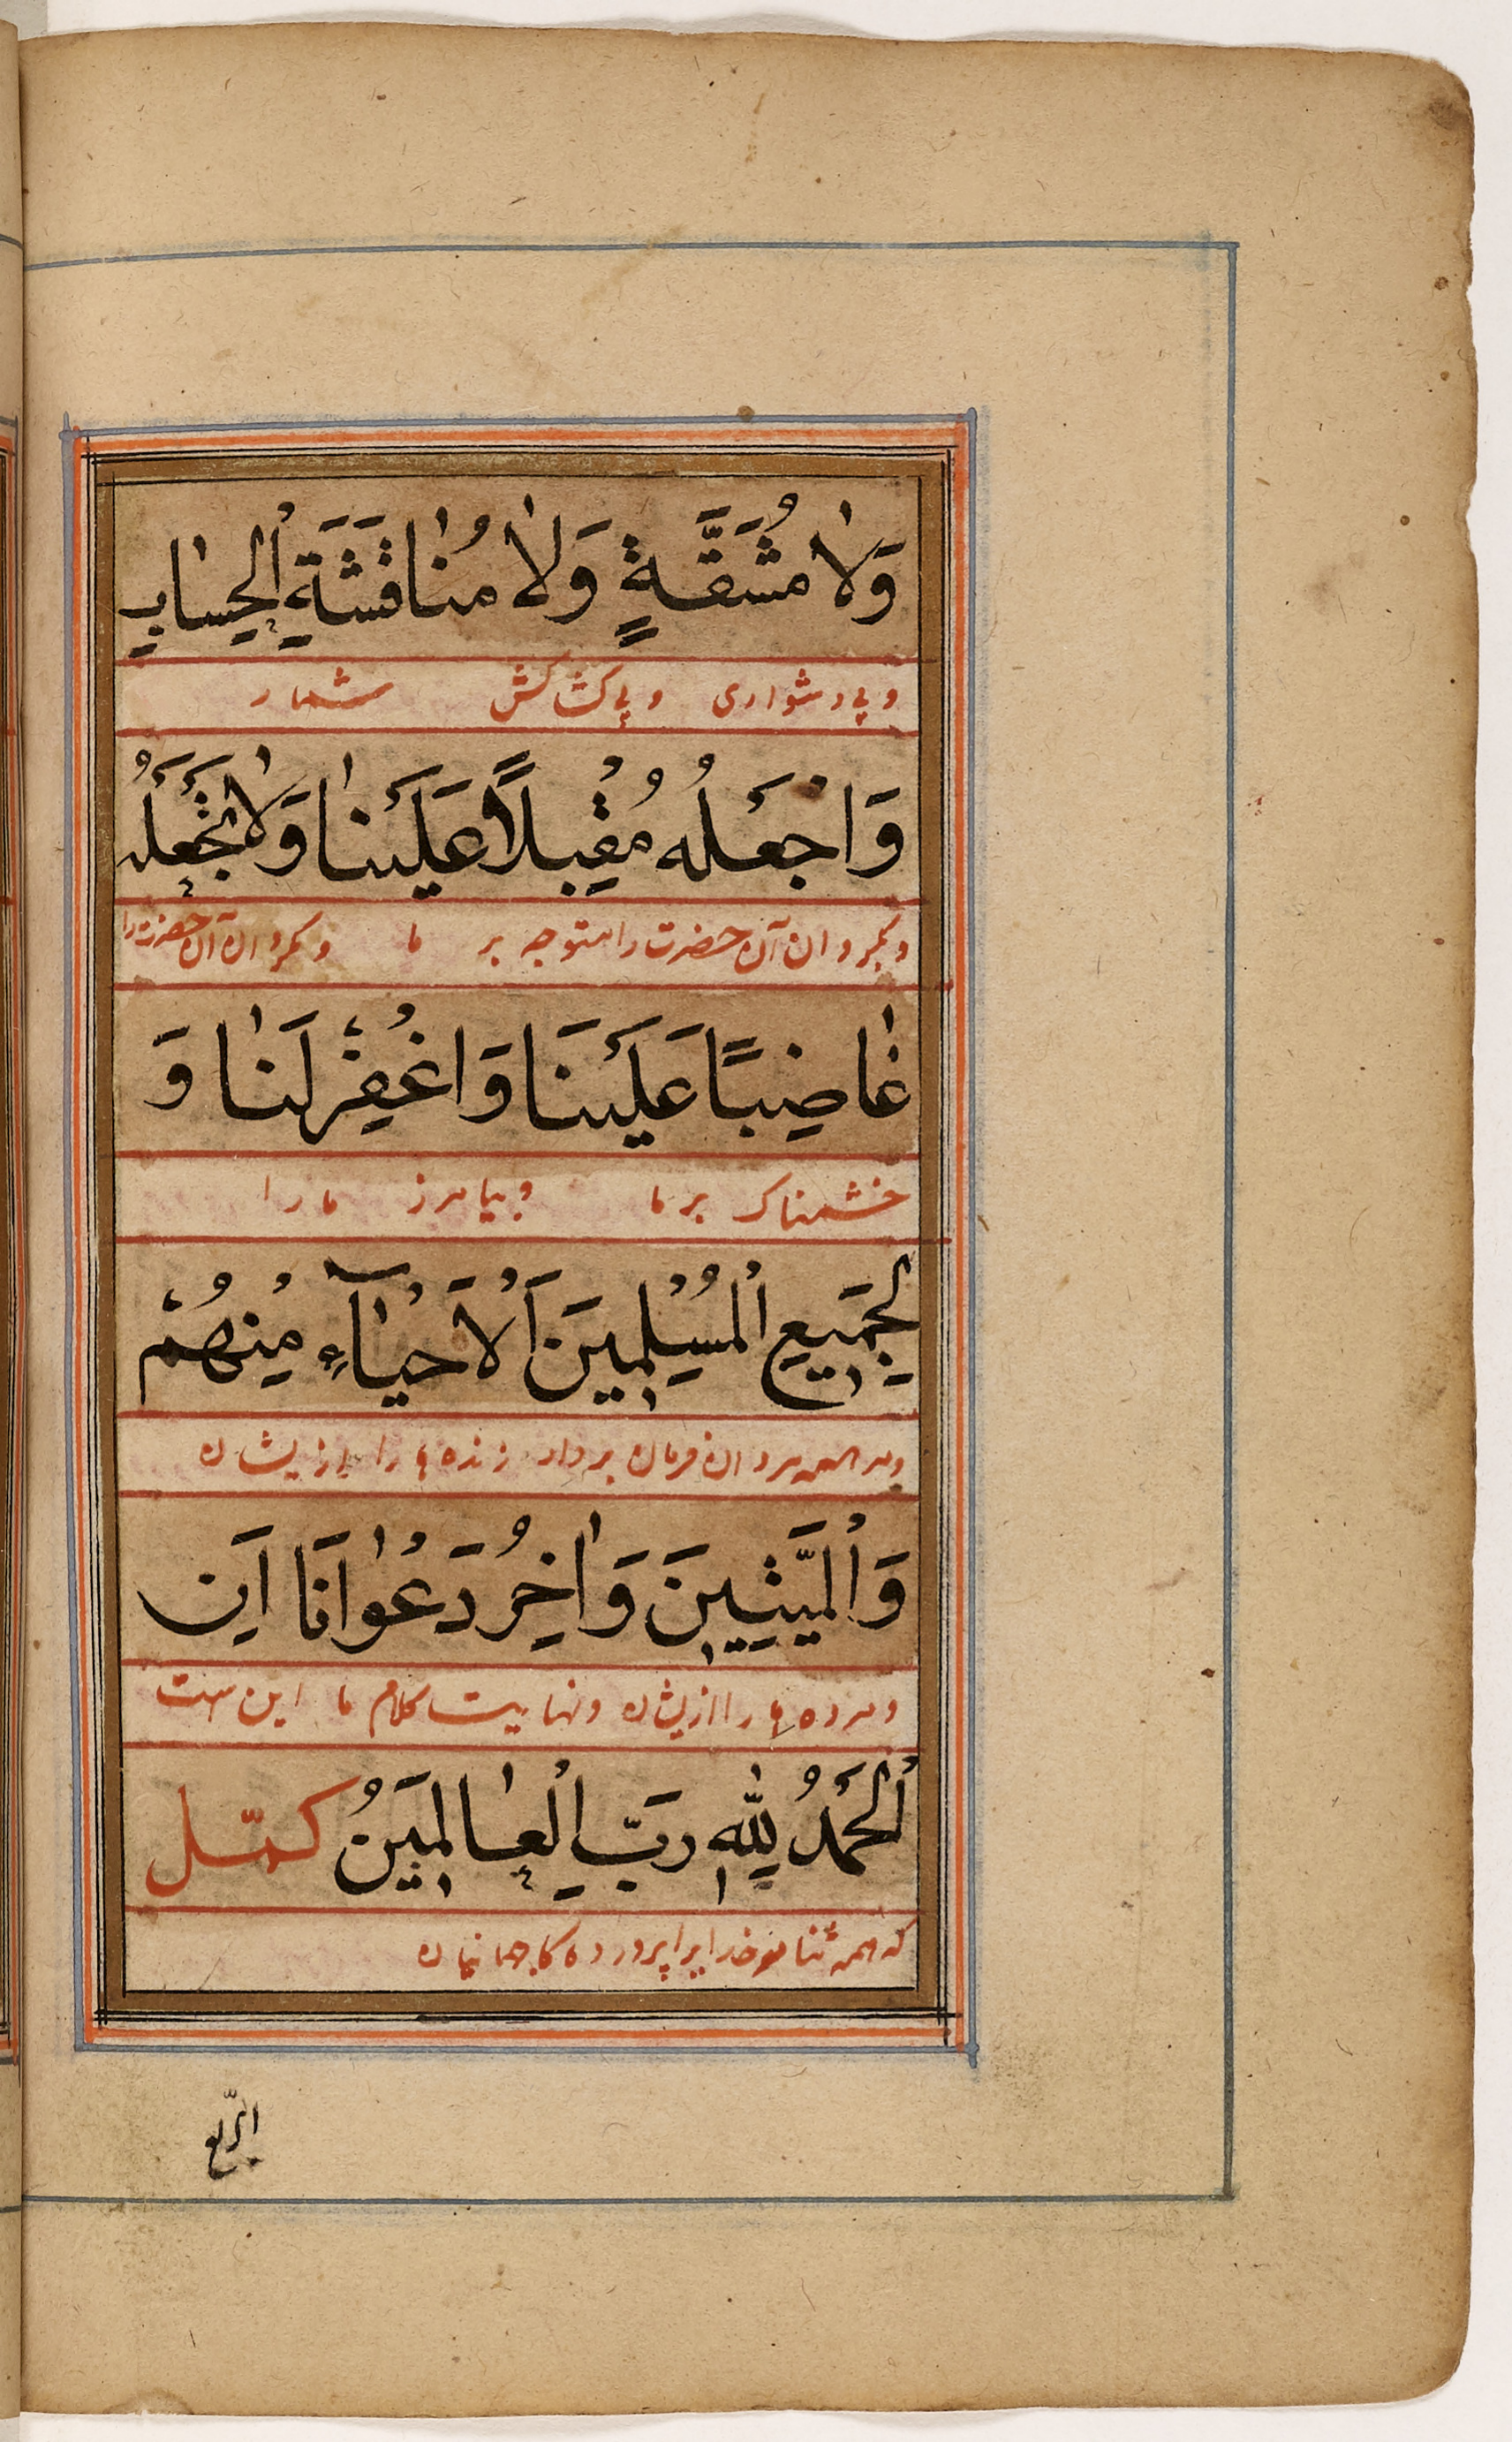 وَلَا مُشَقَّةٍ وَلَا مُنَاقَشَةِ الْحِسَابِ
و بی دشواری و بی کشاکش شمار
وَاجْعَلْهُ مُقْبِلًا عَلَيْنَا وَلَا تَجْعَلْهُ
و بگردان آن حضرت را متوجه بر ما و مگردان آن حضرت را
غَاضِبًا عَلَيْنَا وَاغْفِرْ لَنَا وَ
خشمناک بر ما و بیامرز ما را
لِجَمِيعِ الْمُسْلِمِينَ الْأَحْيَاءِ مِنْهُمْ
فرمان بردار زنده ها را ازیشان
وَالْمَيِّتِينَ وَآخِرُ دَعْوَانَا أَنِ
و مرده ها را ازیشان و نهایت کلام ما این ست
الْحَمْدُ لِلَّهِ رَبِّ الْعَالَمِينَ كمّل
که همه ثنا مر خدایرا پرورده کار جهانیان
الرّبع